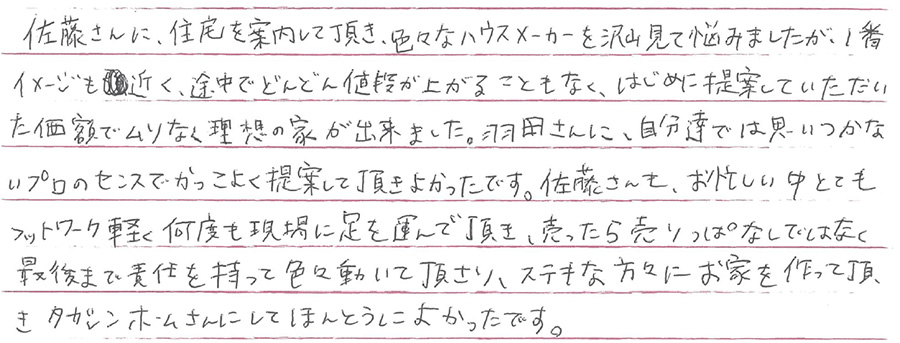 佐藤さんに、住宅を案内して頂き、色々なハウスメーカーを沢山見て悩みましたが、1番
イメージも近く、途中でどんどん値段が上がることもなく、はじめに提案していただい
た価額でムリなく理想の家が出来ました。羽岡さんに、自分達では思いつかな
いプロのセンスでかっこよく提案して頂きよかったです。佐藤さんも、お忙しい中とても
フットワーク軽く何度も現場に足を運んで頂き、売ったら売りっぱなしではなく
最後まで責任を持って色々動いて頂さり、ステキな方々にお家を作って頂
き タカシンホームさんにしてほんとうによかったです。